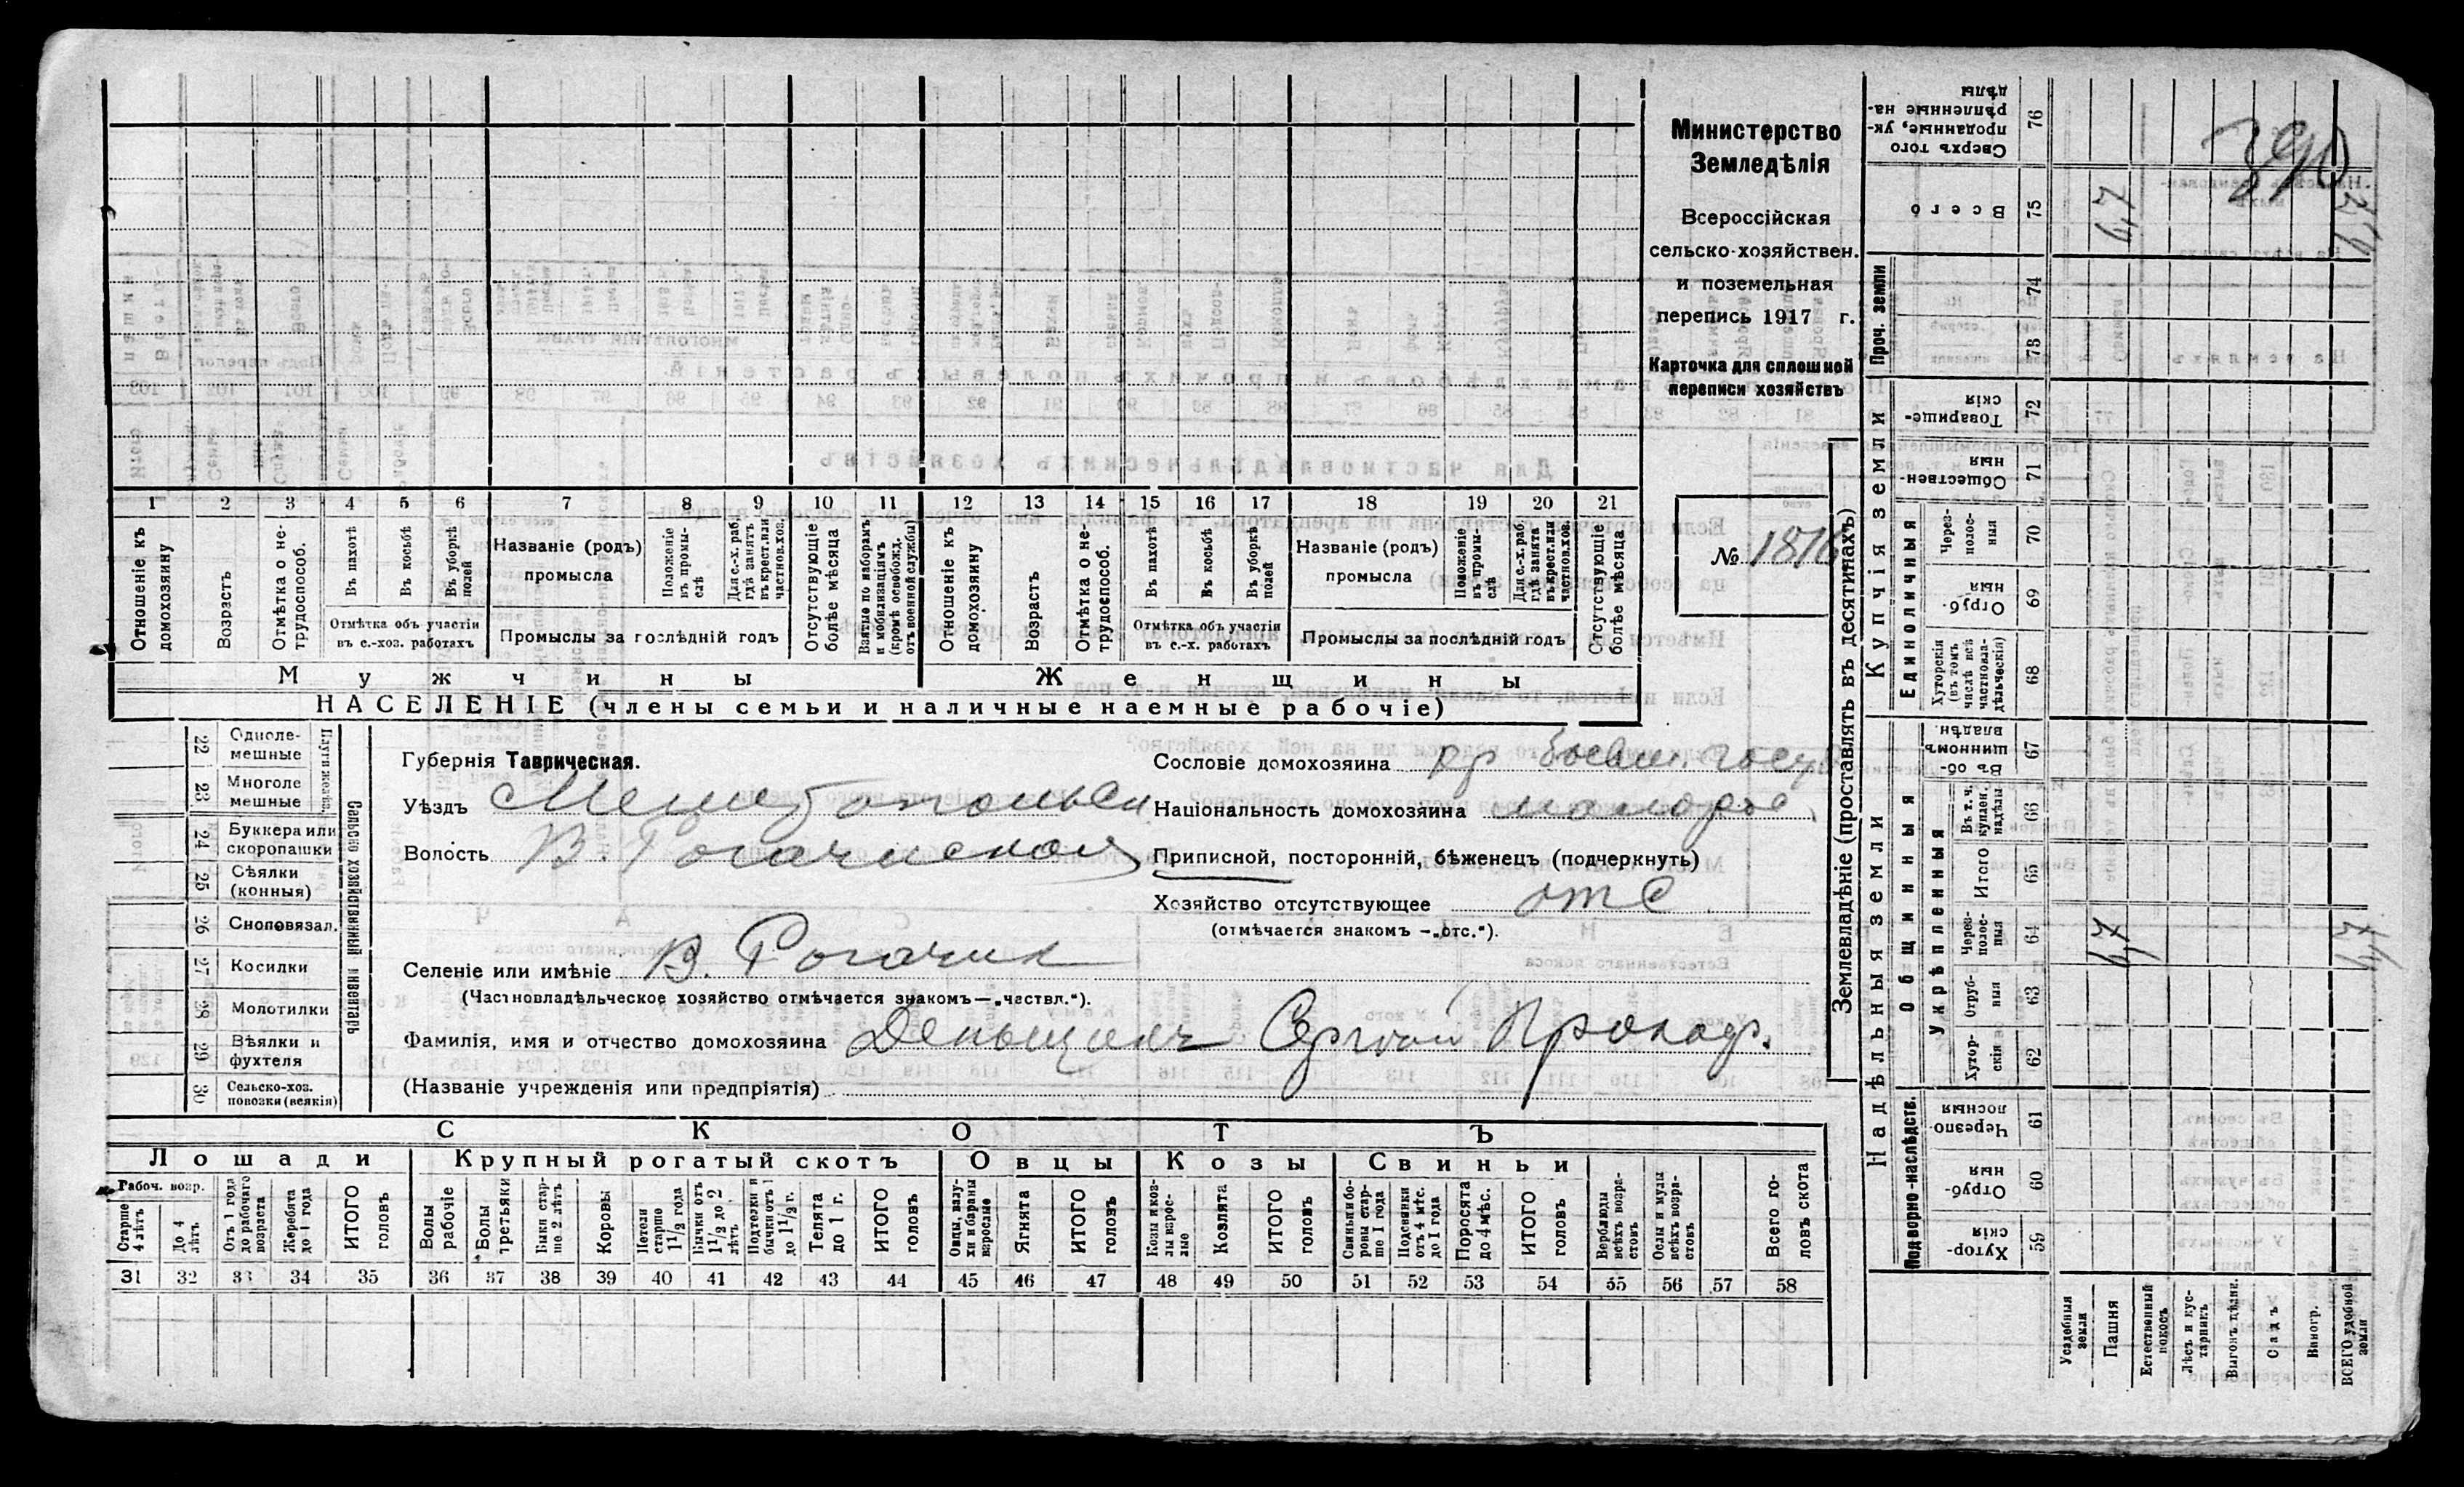 Министерство
Земледѣлія
Всероссійская
сельско-хозяйствен.
и поземельная
перепись 1917 г.
Карточка для сплошной
переписи хозяйствъ
№ 1816
390
1 2 3 4 5 6 7 8 9 10 11 12 13 14 15 16 17 18 19 20 21
Отношеніе къ домохозяину
Возрастъ
Отмѣтка о нетрудоспособ.
Въ пахотѣ
Въ косьбѣ
Въ уборкѣ полей
Отмѣтка объ участіи въ с.-хоз. работахъ
Названіе (родъ) промысла
Положеніе въ промыслѣ
Для с.-х. раб. гдѣ занятъ въ крест. или частновл. хоз.
Промыслы за послѣдній годъ
Отсутствующіе болѣе мѣсяца
Взятые по наборамъ и мобилизаціямъ (кромѣ освобожд. отъ военной службы)
Отношеніе къ домохозяину
Возрастъ
Отмѣтка о нетрудоспособ.
Въ пахотѣ
Въ косьбѣ
Въ уборкѣ полей
Отмѣтка объ участіи въ с.-х. работахъ
Названіе (родъ) промысла
Положеніе въ промыслѣ
Для с.-х. раб. гдѣ занята въ крест. или частновл. хоз.
Промыслы за послѣдній годъ
Отсутствующіе болѣе мѣсяца
Мужчины Женщины
НАСЕЛЕНІЕ (члены семьи и наличные наемные рабочіе)
Сельско хозяйственный инвентарь
22 Однолемешные
23 Многолемешные
24 Буккера или скоропашки
25 Сѣялки (конныя)
26 Сноповязал.
27 Косилки
28 Молотилки
29 Вѣялки и фухтеля
30 Сельско-хоз. повозки (всякія)
Губернія Таврическая.
Уѣздъ Мелитопольск
Волость В. Рогачикская
Селеніе или имѣніе В. Рогачик
(Частновладѣльческое хозяйство отмѣчается знакомъ—„частвл.“).
Фамилія, имя и отчество домохозяина Деньщикъ Сергѣй Прокоф.
(Названіе учрежденія или предпріятія)
Сословіе домохозяина кр бывш. госуд
Національность домохозяина малорос
Приписной, посторонній, бѣженецъ (подчеркнуть)
Хозяйство отсутствующее отс
(отмѣчается знакомъ —„отс.“).
СКОТЪ
Лошади Крупный рогатый скотъ Овцы Козы Свиньи
Рабоч. возр.
Старше 4 лѣтъ
До 4 лѣтъ
Отъ 1 года до рабочаго возраста
Жеребята до 1 года
ИТОГО головъ
Волы рабочіе
Волы третьяки
Быки старше 2 лѣтъ
Коровы
Нетели старше 1 1/2 года
Бычки отъ 1 1/2 до 2 лѣтъ
Подтелки и бычки отъ 1 до 1 1/2 г.
Телята до 1 г.
ИТОГО головъ
Овцы, валухи и бараны взрослые
Ягнята
ИТОГО головъ
Козы и козлы взрослые
Козлята
ИТОГО головъ
Свиньи и боровы старше 1 года
Подсвинки отъ 4 мѣс. до 1 года
Поросята до 4 мѣс.
ИТОГО головъ
Верблюды всѣхъ возрастовъ
Ослы и мулы всѣхъ возрастовъ
Всего головъ скота
31 32 33 34 35 36 37 38 39 40 41 42 43 44 45 46 47 48 49 50 51 52 53 54 55 56 57 58
Землевладѣніе (проставлять въ десятинахъ)
Надѣльныя земли
Купчія земли
Подворно-наслѣдств.
Хуторскія 59
Отрубныя 60
Черезполосныя 61
Общинныя
Укрѣпленныя
Хуторскія 62
Отрубныя 63
Черезполосныя 64
Итого 65
Въ т. ч. куплен. надѣлы 66
Въ общинномъ владѣн. 67
Единоличныя
Хуторскія (въ томъ числѣ всѣ частновладѣльческія) 68
Отрубныя 69
Черезполосныя 70
Общественныя 71
Товарищескія 72
Проч. земли 73 74
Всего 75
Сверхъ того проданные, укрѣпленные надѣлы 76
Усадебныя земли
Пашня
Естественный покосъ
Лѣсъ и кустарникъ
Выгонъ цѣлин.
Садъ
Виногр.
ВСЕГО удобной земли